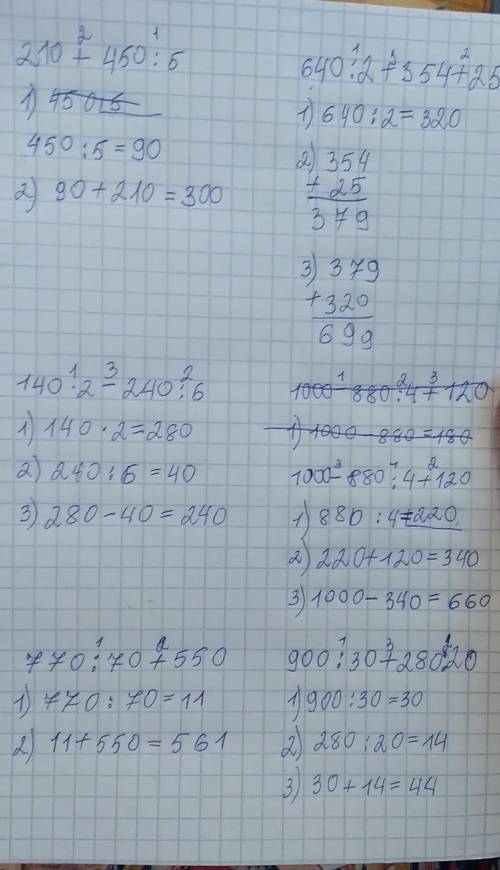 2 1
210 + 450 : 5
1) 450:5
450 : 5 = 90
2) 90 + 210 = 300
1 3 2
640 : 2 + 354 + 25
1) 640 : 2 = 320
2) 354
+ 25
379
3) 379
+ 320
699
1 3 2
140 · 2 - 240 : 6
1) 140 · 2 = 280
2) 240 : 6 = 40
3) 280 - 40 = 240
1 2 3
1000 - 880 : 4 + 120
1) 1000 - 880 = 180
3 1 2
1000 - 880 : 4 + 120
1) 880 : 4 = 220
2) 220 + 120 = 340
3) 1000 - 340 = 660
1 2
770 : 70 + 550
1) 770 : 70 = 11
2) 11 + 550 = 561
1 3 2
900 : 30 + 280 : 20
1) 900 : 30 = 30
2) 280 : 20 = 14
3) 30 + 14 = 44